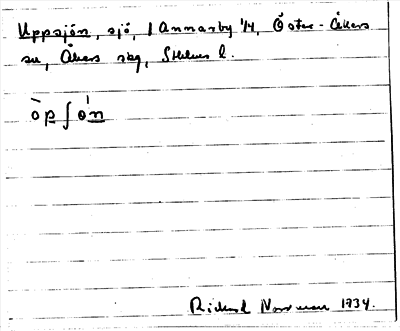 Uppsjön, sjö, i Annarsby 1/4, Öster-Åkers
sn, Åkers skg, Sthlms l.
òp∫ö́n
Rickard Norrman 1934.